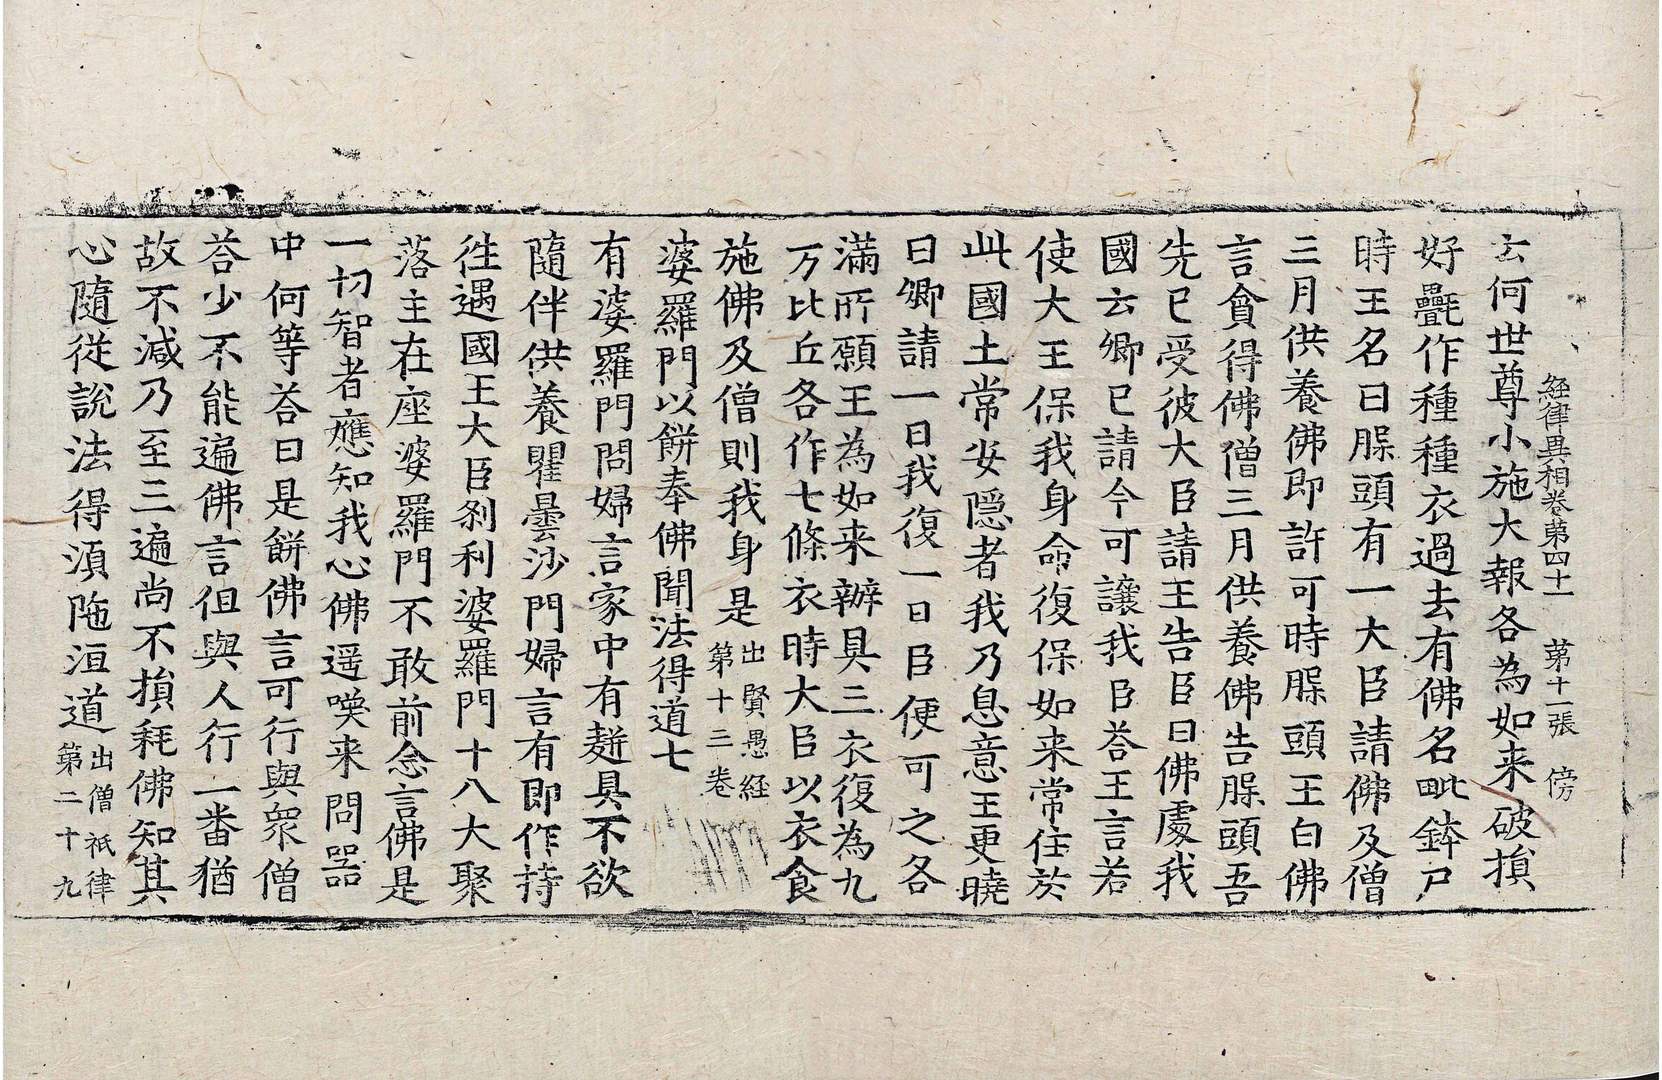 経律異相卷第四十一 第十一張 傍
云何世尊小施大報各為如来破損
好㲲作種種衣過去有佛名毗鉢尸
時王名曰脲頭有一大臣請佛及僧
三月供養佛即許可時脲頭王白佛
言貪得佛僧三月供養佛告脲頭吾
先已受彼大臣請王告臣曰佛處我
國云卿已請今可讓我臣荅王言若
使大王保我身命復保如来常住於
此國土常安隠者我乃息意王更曉
曰卿請一日我復一日臣便可之各
滿所願王為如来辦具三衣復為九
万比丘各作七條衣時大臣以衣食
施佛及僧則我身是出賢愚経第十二卷
婆羅門以餅奉佛聞法得道七
有婆羅門問婦言家中有䴵具不欲
隨伴供養瞿曇沙門婦言有即作持
徃遇國王大臣刹利婆羅門十八大聚
落主在座婆羅門不敢前念言佛是
一切智者應知我心佛遥嘆来問器
中何等荅曰是餅佛言可行與衆僧
荅少不能遍佛言但與人行一番猶
故不減乃至三遍尚不損耗佛知其
心隨從說法得湏陁洹道出僧祇律第二十九